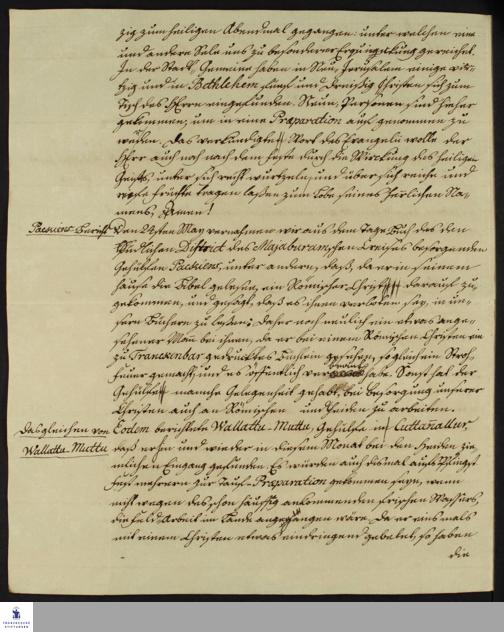 zig zum heiligen Abendmal gegangen: unter welchen eine
und andere Sele uns zu besonderer Erquickung gereichet.
In der Stadt-Gemeine haben in Neu-Jerusalem einige vir-
zig und in Bethlehem fünf und dreißig Christen sich zum
Tisch des Herrn eingefunden. Neun Personen sind hieher
gekommen, um in eine Præparation aufgenommen zu
werden. Das verkündigte Wort des Evangelii wolle der
Herr auch noch nach dem Feste durch die Wirckung des heiligen
Geistes, unter sich recht wurtzeln, und über sich reiche und
viele Früchte tragen laßen zum Lobe seines herlichen Na-
mens, Amen!
Paekiens Bericht
Den May vernahmen wir aus dem Tage-Buch des den
Südlichen District des Majaburamschen Creißes besorgenden
Gehülfen Paekiens, unter andern, daß, da er in seinem
Hause die Bibel gelesen, ein Römischer Christ darauf zu-
gekommen, und gesagt, daß es ihnen verboten sey, in un-
sern Büchern zu lesen; daher noch neulich ein etwas ange-
sehener Man bei ihnen, da er bei einem Römischen Christen ein
zu Tranckenbar gedrucktes Büchlein gesehen, so gleich ein Stroh-
feuer gemacht, und es öffentlich verbrant habe. Sonst hat der
Gehülfe manche Gelegenheit gehabt, bei Besorgung unserer
Christen auch an Römischen und Heiden zu arbeiten.
Desgleichen von
Wallattu-Muttu
Eodem berichtete Wallattu-Muttu, Gehülfe in Cuttanallur,
daß er hin und wieder in diesem Monat bei den Heiden zie-
mlichen Eingang gefunden. Es würden auch dismal aufs Pfingst-
fest mehrere zur Tauf-Præparation gekommen seyn, wenn
nicht wegen des schon häuffig ankommenden frischen Wassers,
die Feld-Arbeit im Lande angefangen wäre. Da er einsmals
mit einem Christen etwas eindringend gebetet, so haben
die
FRANCKESCHE
STIFTUNGEN